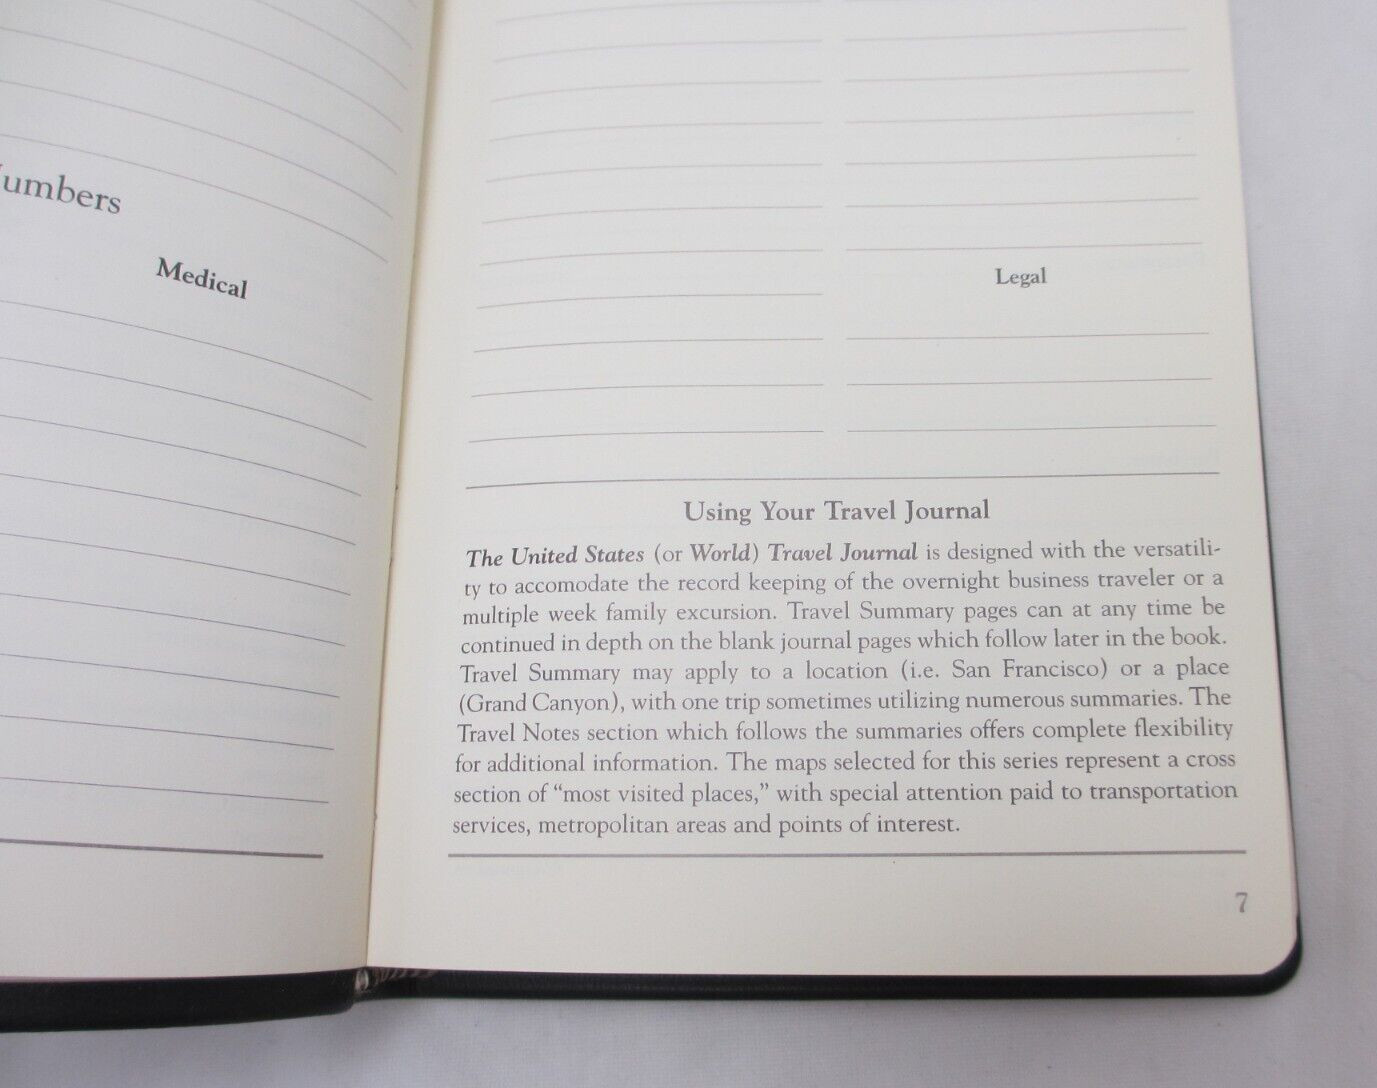 umbers
Medical
Legal
Using Your Travel Journal
The United States (or World) Travel Journal is designed with the versatili-
ty to accomodate the record keeping of the overnight business traveler or a
multiple week family excursion. Travel Summary pages can at any time be
continued in depth on the blank journal pages which follow later in the book.
Travel Summary may apply to a location (i.e. San Francisco) or a place
(Grand Canyon), with one trip sometimes utilizing numerous summaries. The
Travel Notes section which follows the summaries offers complete flexibility
for additional information. The maps selected for this series represent a cross
section of “most visited places,” with special attention paid to transportation
services, metropolitan areas and points of interest.
7